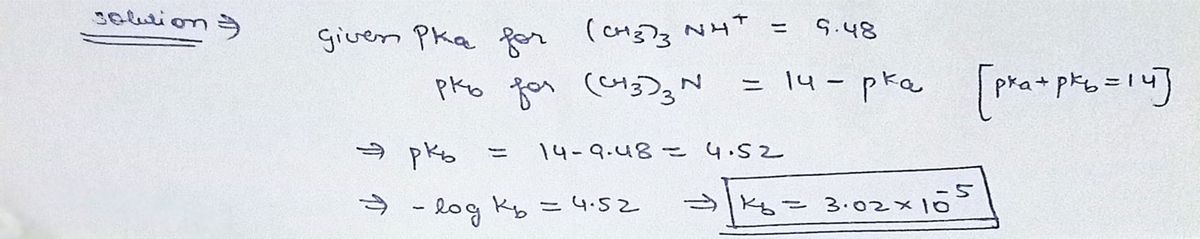 solution ⇒ given Pka for (CH3)3 NH⁺ = 9.48
pkb for (CH3)3 N = 14 - pka [pka + pkb = 14]
⇒ pkb = 14 - 9.48 = 4.52
⇒ - log kb = 4.52 ⇒ kb = 3.02 × 10⁻⁵